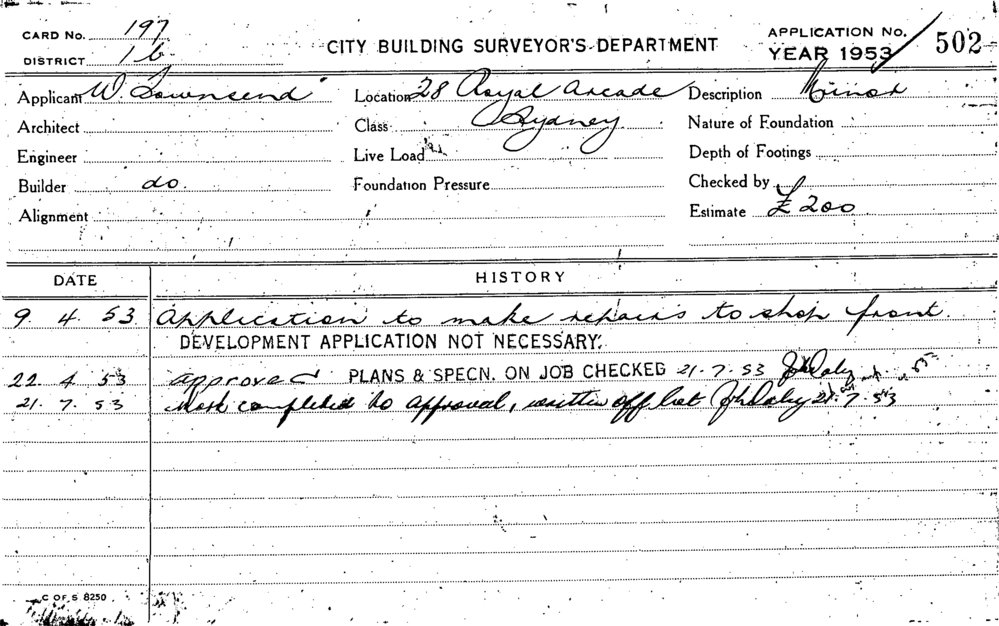 CARD No. 197
DISTRICT 16
CITY BUILDING SURVEYOR'S DEPARTMENT
APPLICATION No.
YEAR 1953 / 502
Applicant W. Townsend
Location 28 Royal Arcade
Description Minor
Architect
Class Sydney
Nature of Foundation
Engineer
Live Load
Depth of Footings
Builder do.
Foundation Pressure
Checked by
Alignment
Estimate £200
DATE
HISTORY
9. 4. 53 Application to make repairs to shop front
DEVELOPMENT APPLICATION NOT NECESSARY.
22 4 53 Approved PLANS & SPECN. ON JOB CHECKED 21.7.53 JhDaly
21. 7. 53 Work completed to approval, written off list JhDaly 21.7.53
C OF S 8250